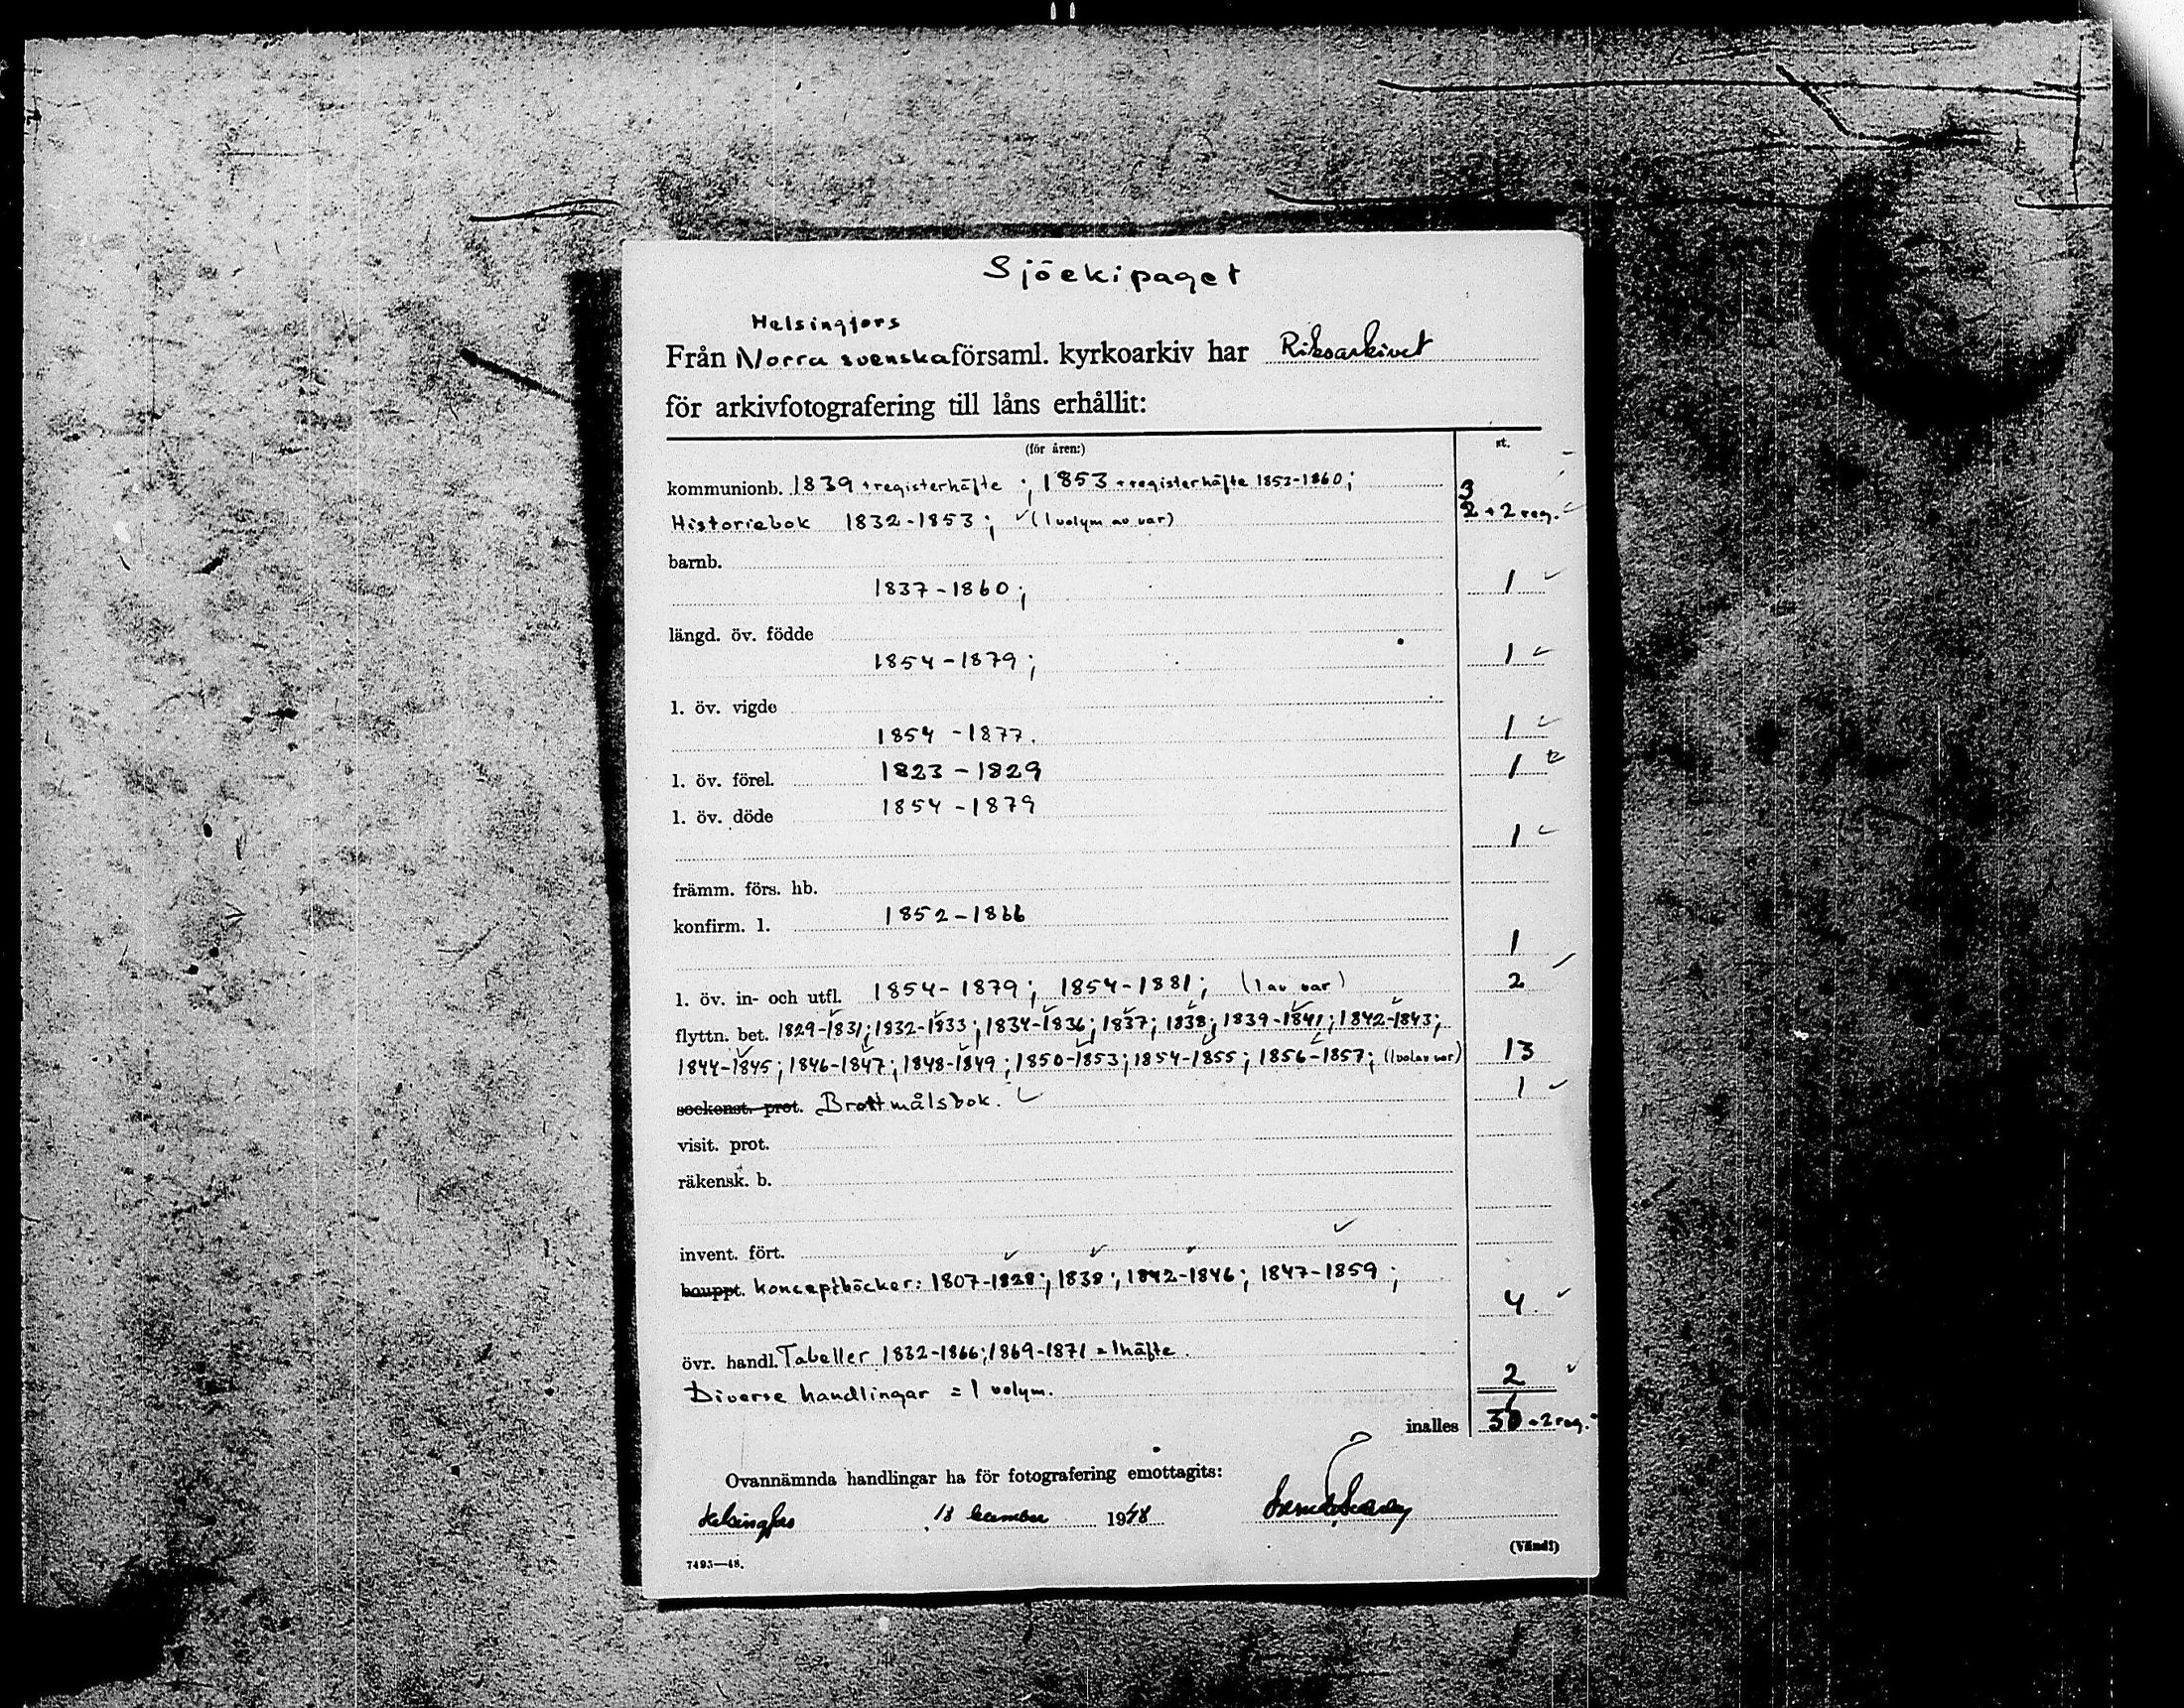 Sjöekipaget
Helsingfors
Från Norra svenska församl. kyrkoarkiv har Riksarkivet
för arkivfotografering till låns erhållit:
(för åren:) st.
kommunionb. 1839 + registerhäfte ; 1853 + registerhäfte 1853-1860; 3
Historiebok 1832-1853; (1 volym av var) 2 + 2 reg.
barnb.
1837-1860; 1
längd. öv. födde
1854-1879; 1
l. öv. vigde
1854-1877. 1
l. öv. förel. 1823-1829 1
l. öv. döde 1854-1879
1
främm. förs. hb.
konfirm. l. 1852-1866
1
l. öv. in- och utfl. 1854-1879; 1854-1881; (1 av var) 2
flyttn. bet. 1829-1831; 1832-1833; 1834-1836; 1837; 1838; 1839-1841; 1842-1843;
1844-1845; 1846-1847; 1848-1849; 1850-1853; 1854-1855; 1856-1857; (1 vol av var) 13
sockenst. prot. Brottmålsbok. 1
visit. prot.
räkensk. b.
invent. fört.
bouppt. Konceptböcker: 1807-1828; 1838; 1842-1846; 1847-1859; 4
övr. handl. Tabeller 1832-1866; 1869-1871 = 1 häfte.
Diverse handlingar = 1 volym. 2
inalles + 2 reg.
Ovannämnda handlingar ha för fotografering emottagits:
Helsingfors 18 december 1948
(Vänd!)
7495—48.